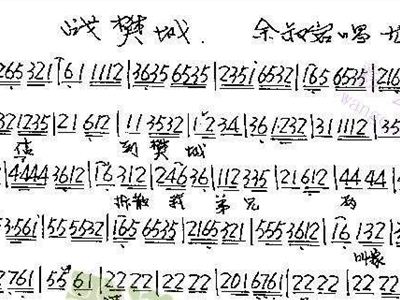 战樊城. 余叔岩唱
265 321 | 1̇6̣1 1112 | 3635 6535 | 2351 6532 | 165 6535 | 216
321235 | 21 612 | 11 3532 | 1234 | 36 1232 | 31 1112 | 35
信 到 樊 城
4444 3612 | 16 312 | 246 36 | 112 335 | 21 612 | 44 44 | 5
拆散 我 弟 兄
3561 | 55 5532 | 165 6535 | 2165 321 | 555 3612 | 16 132 | 3
叫家
2761 | 55 61 | 22 22 | 22 22 | 201 6761 | 22 22 | 22 22